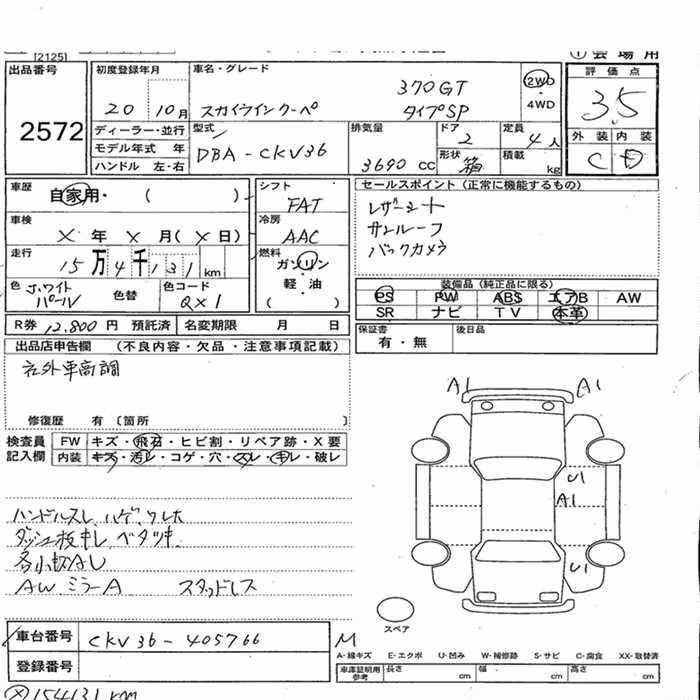 [2125]
① 会場用
出品番号
2572
初度登録年月
20 10月
車名・グレード
370GT
スカイラインクーペ タイプSP
2WD
・
4WD
評価点
3.5
外装 内装
C D
ディーラー・並行
モデル年式 年
ハンドル 左・右
型式
DBA-CKV36
排気量
3690 CC
ドア
2
定員
4人
形状
箱
積載
kg
車歴
自家用・( )
車検
X年 X月(X日)
走行
15万4千131km
色 J.ワイト パール
色替
色コード
QX1
シフト
FAT
冷房
AAC
燃料
ガソリン
軽・油
( )
セールスポイント(正常に機能するもの)
レザーシート
サンルーフ
バックカメラ
装備品(純正品に限る)
PS PW ABS エアB AW
SR ナビ TV 本革
R券 12,800円 預託済
名変期限 月 日
保証書
有・無
後日品
出品店申告欄 (不良内容・欠品・注意事項記載)
社外車高調
修復歴 有 〔箇所 〕
検査員
記入欄
FW キズ・飛石・ヒビ割・リペア跡・X要
内装 キズ・汚レ・コゲ・穴・スレ・キレ・破レ
A1 A1
U1
A1
U1
ハンドルスレ、ハゲ、ウレタ
ダッシュ板キレ、ベタツキ
各小キズAU
AW ミラーA スタッドレス
スペア
車台番号
CKV36-405766
M
登録番号
A-線キズ E-エクボ U-凹み W-補修跡 S-サビ C-腐食 XX-取替済
車庫証明用
参考
長さ cm 幅 cm 高さ cm
Ⓧ154131km